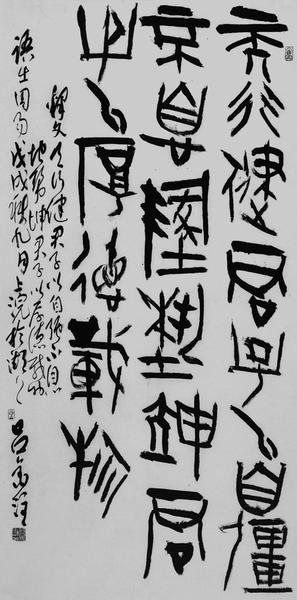 天行健君子以自彊
不息墬埶坤君
子以厚德載物
釋文 天行健君子以自强不息
地勢坤君子以厚德載物
語出周易戊戌秋九月上浣於
吕